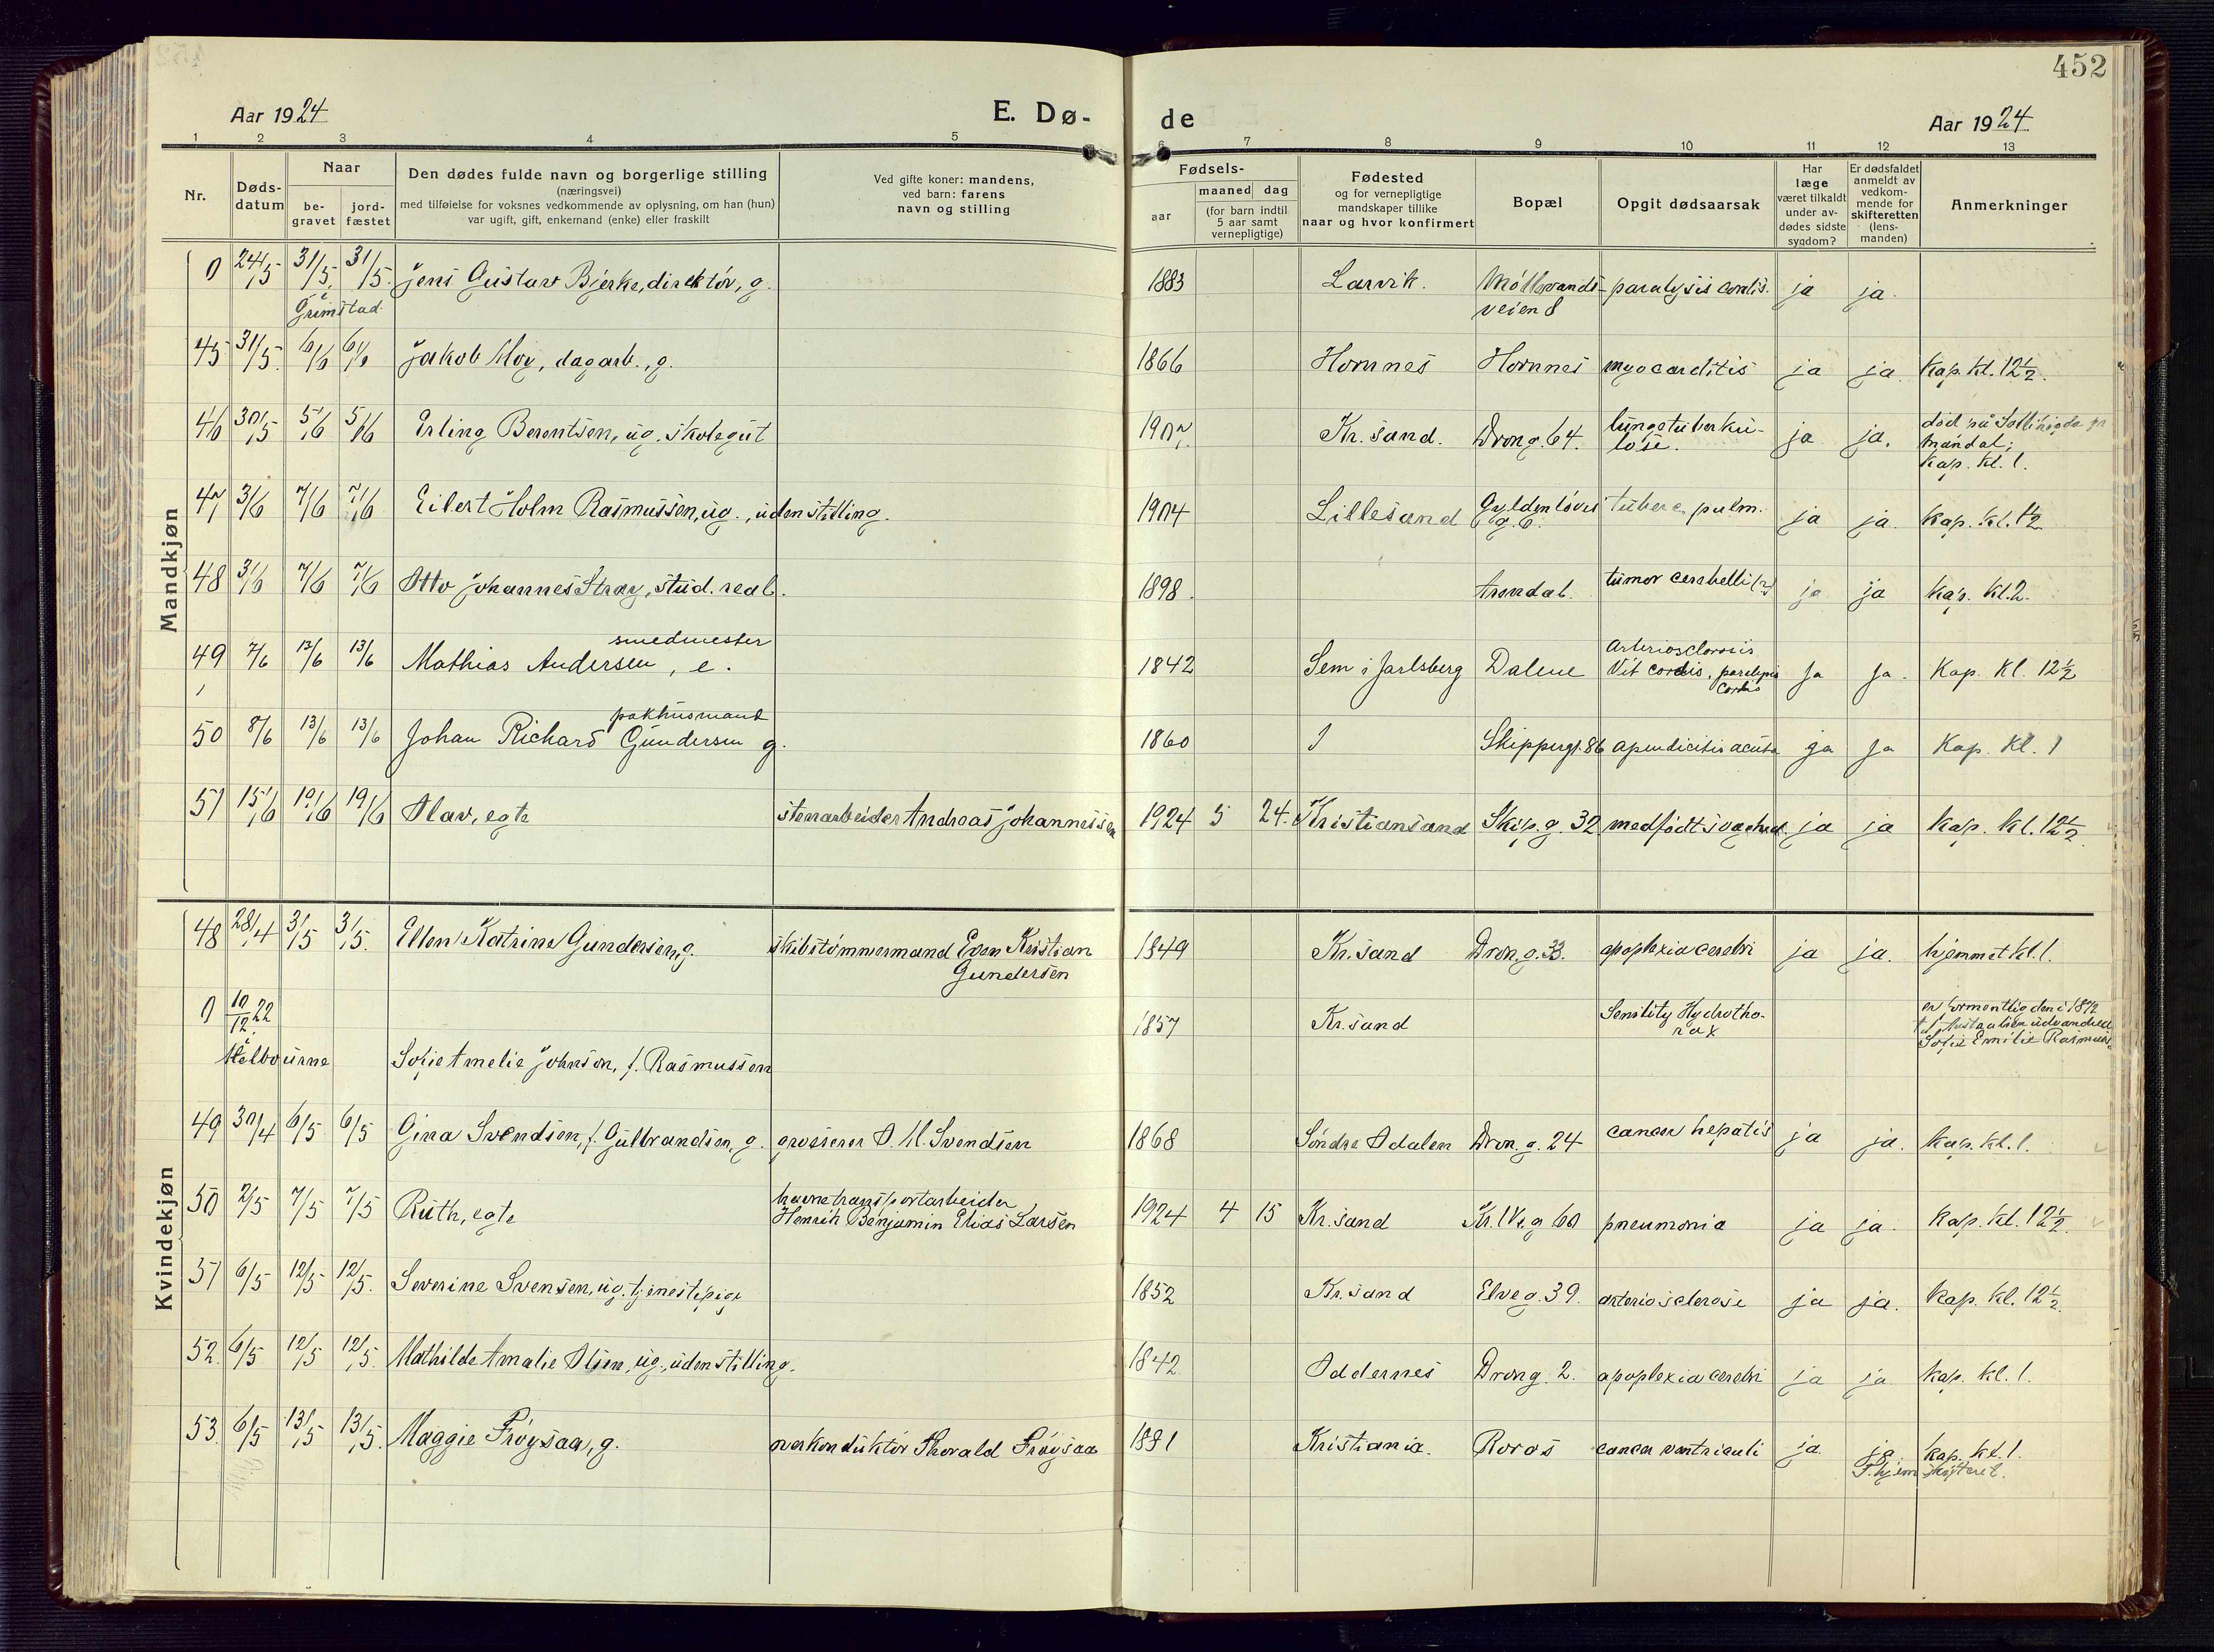 452
Aar 1924 E. Dø-
de Aar 1924
1 2 3 4 5 6 7 8 9 10 11 12 13
Nr.
Døds-
datum
Naar
be-
gravet
jord-
fæstet
Den dødes fulde navn og borgerlige stilling
(næringsvei)
med tilføielse for voksnes vedkommende av oplysning, om han (hun)
var ugift, gift, enkemand (enke) eller fraskilt
Ved gifte koner: mandens,
ved barn: farens
navn og stilling
Fødsels-
aar
maaned dag
(for barn indtil
5 aar samt
vernepligtige)
Fødested
og for vernepligtige
mandskaper tillike
naar og hvor konfirmert
Bopæl
Opgit dødsaarsak
Har
læge
været tilkaldt
under av-
dødes sidste
sygdom?
Er dødsfaldet
anmeldt av
vedkom-
mende for
skifteretten
(lens-
manden)
Anmerkninger
Mandkjøn
0 24/5 31/5 31/5 Jens Gustav Bjerke, direktör, g. 1883 Larvik. Möllevands- paralysis cordis. ja ja.
Grimstad veien 8
45 31/5 6/6 6/6 Jakob Moy, dagarb., g. 1866 Hornnes Hornnes myocarditis ja ja Kap. kl. 12 1/2.
46 30/5 5/6 5/6 Erling Berentsen, ug. skolegut 1907 Kr.sand. Dron.g. 64. lungetuberku- ja ja. död på
löse. Mandal;
Kap. kl. 1.
47 3/6 7/6 7/6 Eilert Holm Rasmussen, ug., uden stilling. 1904 Lillesand Gyldenlöves tuberc. pulm. ja ja. Kap. kl. 1 1/2
g. 6.
48 3/6 7/6 7/6 Otto Johannes Stray, stud. real. 1898. Arendal. tumor cerebelli (?) ja ja Kap. kl. 2.
49 7/6 13/6 13/6 Mathias Andersen, smedmester e. 1842 Sem i Jarlsberg Dalene arteriosclerosis ja ja. Kap. Kl. 12 1/2
Vit cordis, paralysis
cordis
50 8/6 13/6 13/6 Johan Richard Gundersen pakhusmand g. 1860 Skippergt. 86 apendicitis acuta ja ja Kap. Kl. 1
51 15/6 19/6 19/6 Olav, egte stenarbeider Andreas Johannessen 1924 5 24. Kristiansand Skip.g. 32 medfödt svaghed ja ja Kap. kl. 12 1/2.
Kvindekjøn
48 28/4 3/5 3/5. Ellen Katrine Gundersen, g. skibstömmermand Even Kristian 1849 Kr.sand Dron.g. 33. apoplexia cerebri ja ja. hjemmet kl. 1.
Gundersen
0 10/12 22 1857 Kr.sand Senility Hydrotho- er formentlig den i 1872
rax til Australien udvandrede
Melbourne Sofie Amelie Johnson, f. Rasmussen Sofie Emilie
49 30/4 6/5 6/5 Gina Svendsen, f. Gulbrandsen, g. grosserer O. M. Svendsen 1868 Söndre Odalen Dron.g. 24 cancer hepatis ja ja. Kap. kl. 1.
50 2/5 7/5 7/5 Ruth, egte havnetransportarbeider 1924 4 15 Kr.sand Kr. IVs g 60 pneumonia ja ja. Kap. kl. 12 1/2.
Henrik Benjamin Elias Larsen
51 6/5 12/5 12/5. Severine Svensen, ug. tjenestepige 1852 Kr.sand Elveg. 39. arteriosclerose ja ja. Kap. kl. 12 1/2.
52. 6/5 12/5 12/5. Mathilde Amalie Olsen, ug., uden stilling. 1842. Oddernes Dron.g. 2. apoplexia cerebri ja ja Kap. kl. 1.
53. 6/5 13/5 13/5. Maggie Fröysaa, g. overkonduktör Thorald Fröysaa 1881 Kristiania. Roros cancer ventriculi ja ja kap. kl. 1.